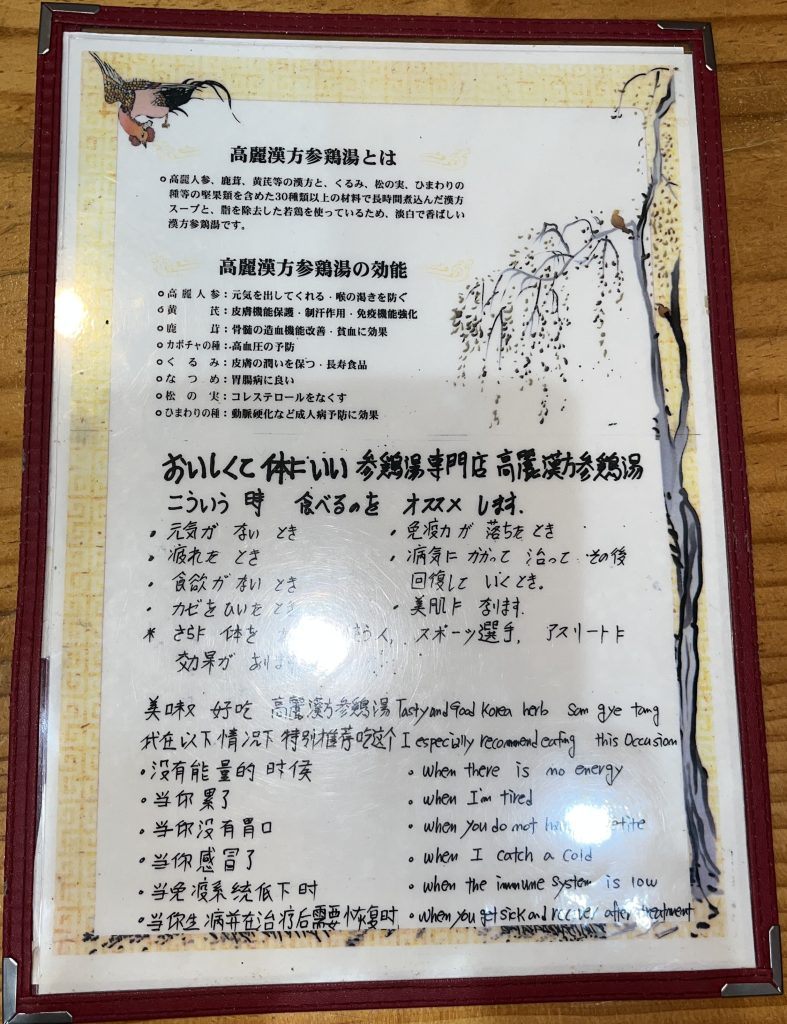 高麗漢方参鶏湯とは
高麗人参、鹿茸、黄芪等の漢方と、くるみ、松の実、ひまわりの
種等の堅果類を含めた30種類以上の材料で長時間煮込んだ漢方
スープと、脂を除去した若鶏を使っているため、淡白で香ばしい
漢方参鶏湯です。
高麗漢方参鶏湯の効能
高麗人参：元気を出してくれる・喉の渇きを防ぐ
黄芪：皮膚機能保護・制汗作用・免疫機能強化
鹿茸：骨髄の造血機能改善・貧血に効果
カボチャの種：高血圧の予防
くるみ：皮膚の潤いを保つ・長寿食品
なつめ：胃腸病に良い
松の実：コレステロールをなくす
ひまわりの種：動脈硬化など成人病予防に効果
おいしくて 体にいい 参鶏湯専門店 高麗漢方参鶏湯
こういう 時 食べるのを オススメ します.
・元気が ない とき
・疲れた とき
・食欲が ない とき
・カゼをひいた とき
・免疫力が 落ちた とき
・病気に かかって 治って その後
回復して いくとき。
・美肌に なります.
* さらに 体を う人, スポーツ選手, アスリートに
効果が あり
美味又 好吃 高麗漢方参鶏湯 Tasty and Good Korea herb Sam gye tang
我在以下情况下 特别推荐吃这个 I especially recommend eating this Occasion
・没有能量的 时候
・当你累了
・当你没有胃口
・当你感冒了
・当免疫系统低下时
・当你生病并在治疗后需要恢复时
・when there is no energy
・when I'm tired
・when you do not
・when I catch a cold
・when the immune system is low
・when you get sick and recover after treatment